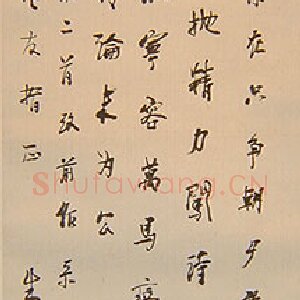 在只争朝夕
抛精力
寧容萬馬
論為公
二首改前作系
友指正
Shufawang.CN